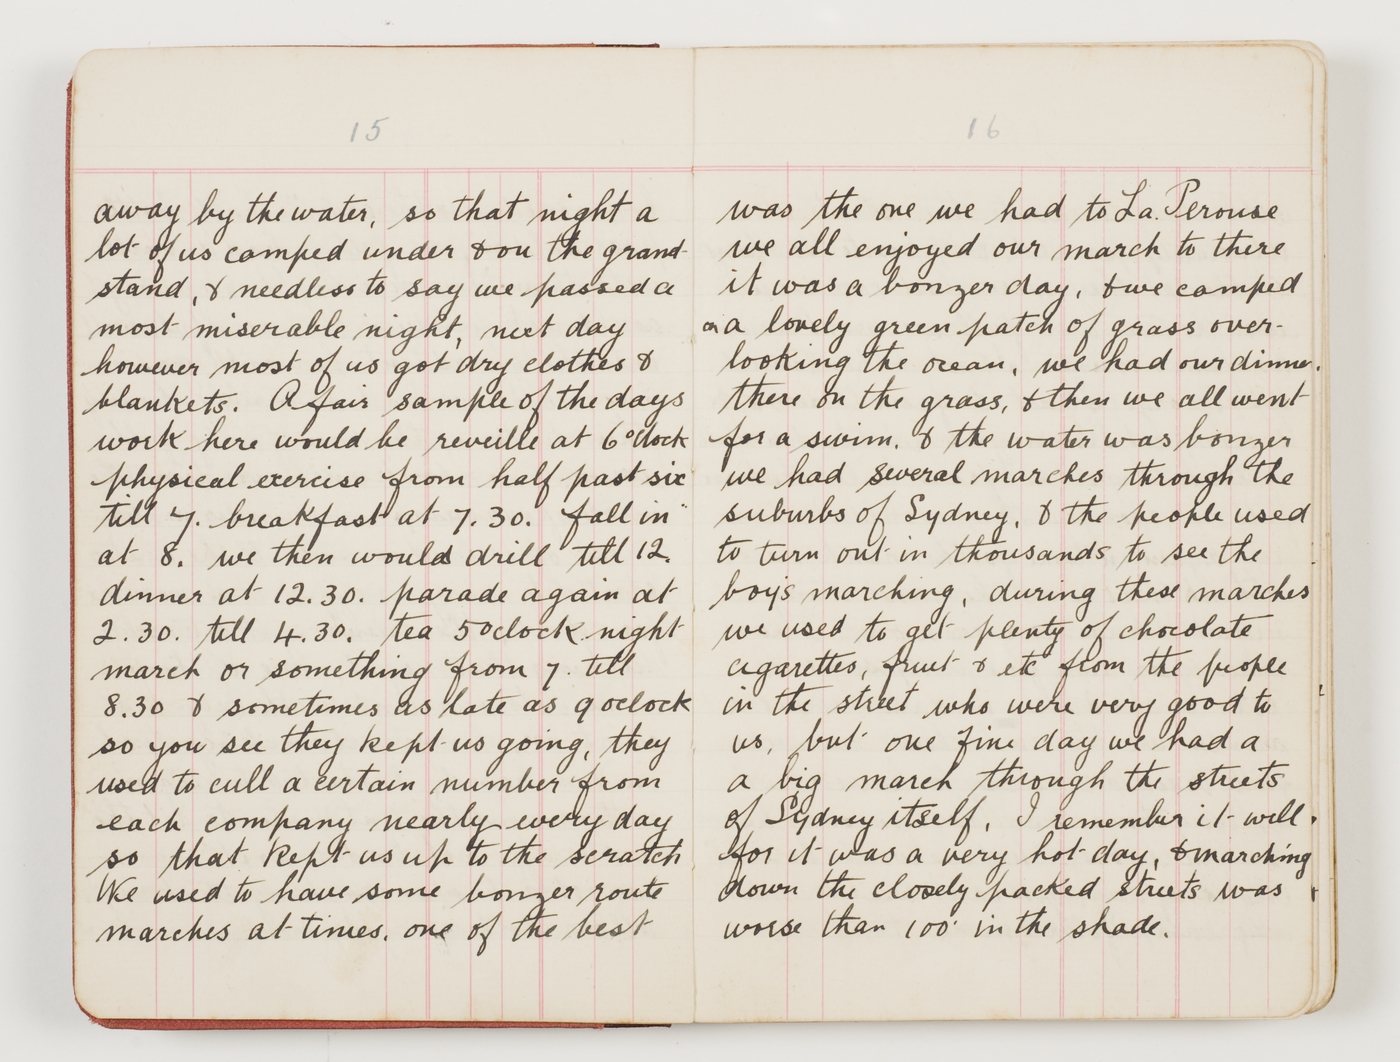 15
away by the water, so that night a
lot of us camped under & on the grand
stand, & needless to say we passed a
most miserable night, next day
however most of us got dry clothes &
blankets. A fair sample of the days
work here would be reveille at 6 o'clock
physical exercise from half past six
till 7. breakfast at 7.30. fall in
at 8. we then would drill till 12.
dinner at 12.30. parade again at
2.30. till 4.30. tea 5 oclock night
march or something from 7. till
8.30 & sometimes as late as 9 oclock
so you see they kept us going, they
used to cull a certain number from
each company nearly every day
so that kept us up to the scratch
We used to have some bonzer route
marches at times. one of the best
16
was the one we had to La. Perouse
we all enjoyed our march to there
it was a bonzer day, & we camped
on a lovely green patch of grass over-
looking the ocean, we had our dinner.
there on the grass, & then we all went
for a swim. & the water was bonzer
we had several marches through the
suburbs of Sydney, & the people used
to turn out in thousands to see the
boys marching, during these marches
we used to get plenty of chocolate
cigarettes, fruit & etc from the people
in the street who were very good to
us, but one fine day we had a
a big march through the streets
of Sydney itself, I remember it well.
for it was a very hot day, & marching
down the closely packed streets was
worse than 100° in the shade.